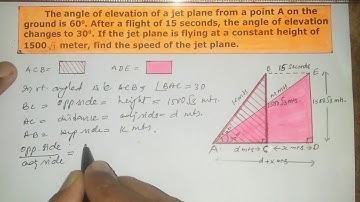 The angle of elevation of a jet plane from a point A on the
ground is 60⁰. After a flight of 15 seconds, the angle of elevation
changes to 30⁰. If the jet plane is flying at a constant height of
1500√3 meter, find the speed of the jet plane.
ACB=
ADE=
angled is ACB, ∠BAC = 30
BC = opp. side = height = 1500√3 mts.
AC = distance = adj. side = d mts.
AB = hyp side = K mts.
opp. side
adj side
=
B 15 Seconds E
K mts
1500√3 mts
1500√3 mts
A d mts C x mts D
d+x mts